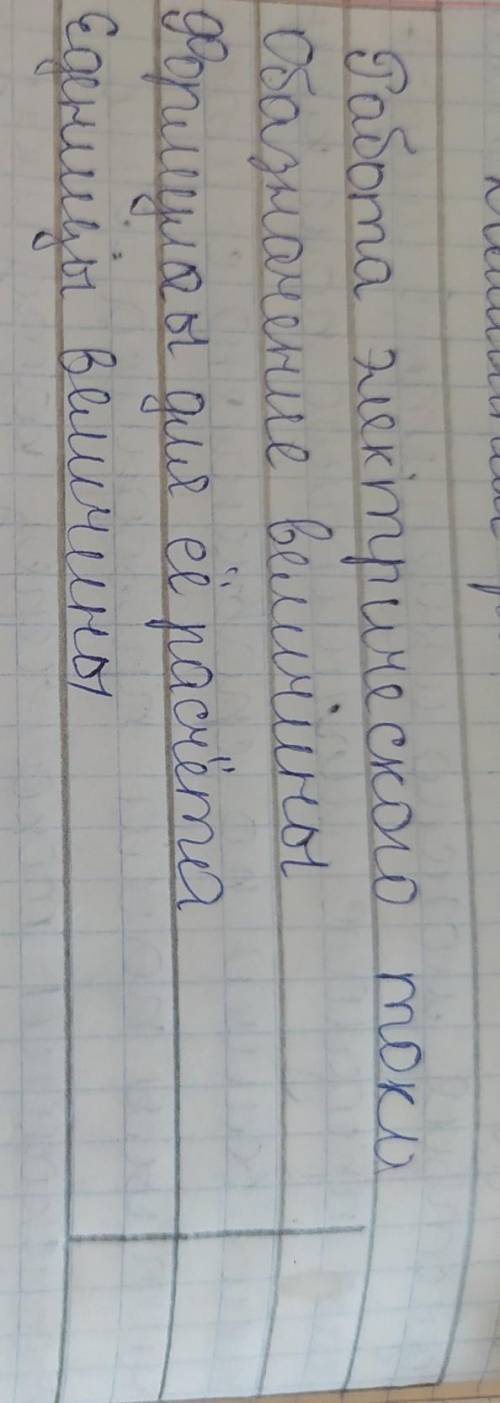 Работа электрического тока
Обазначение величины
Формулаы для её расчёта
Еденицы величины